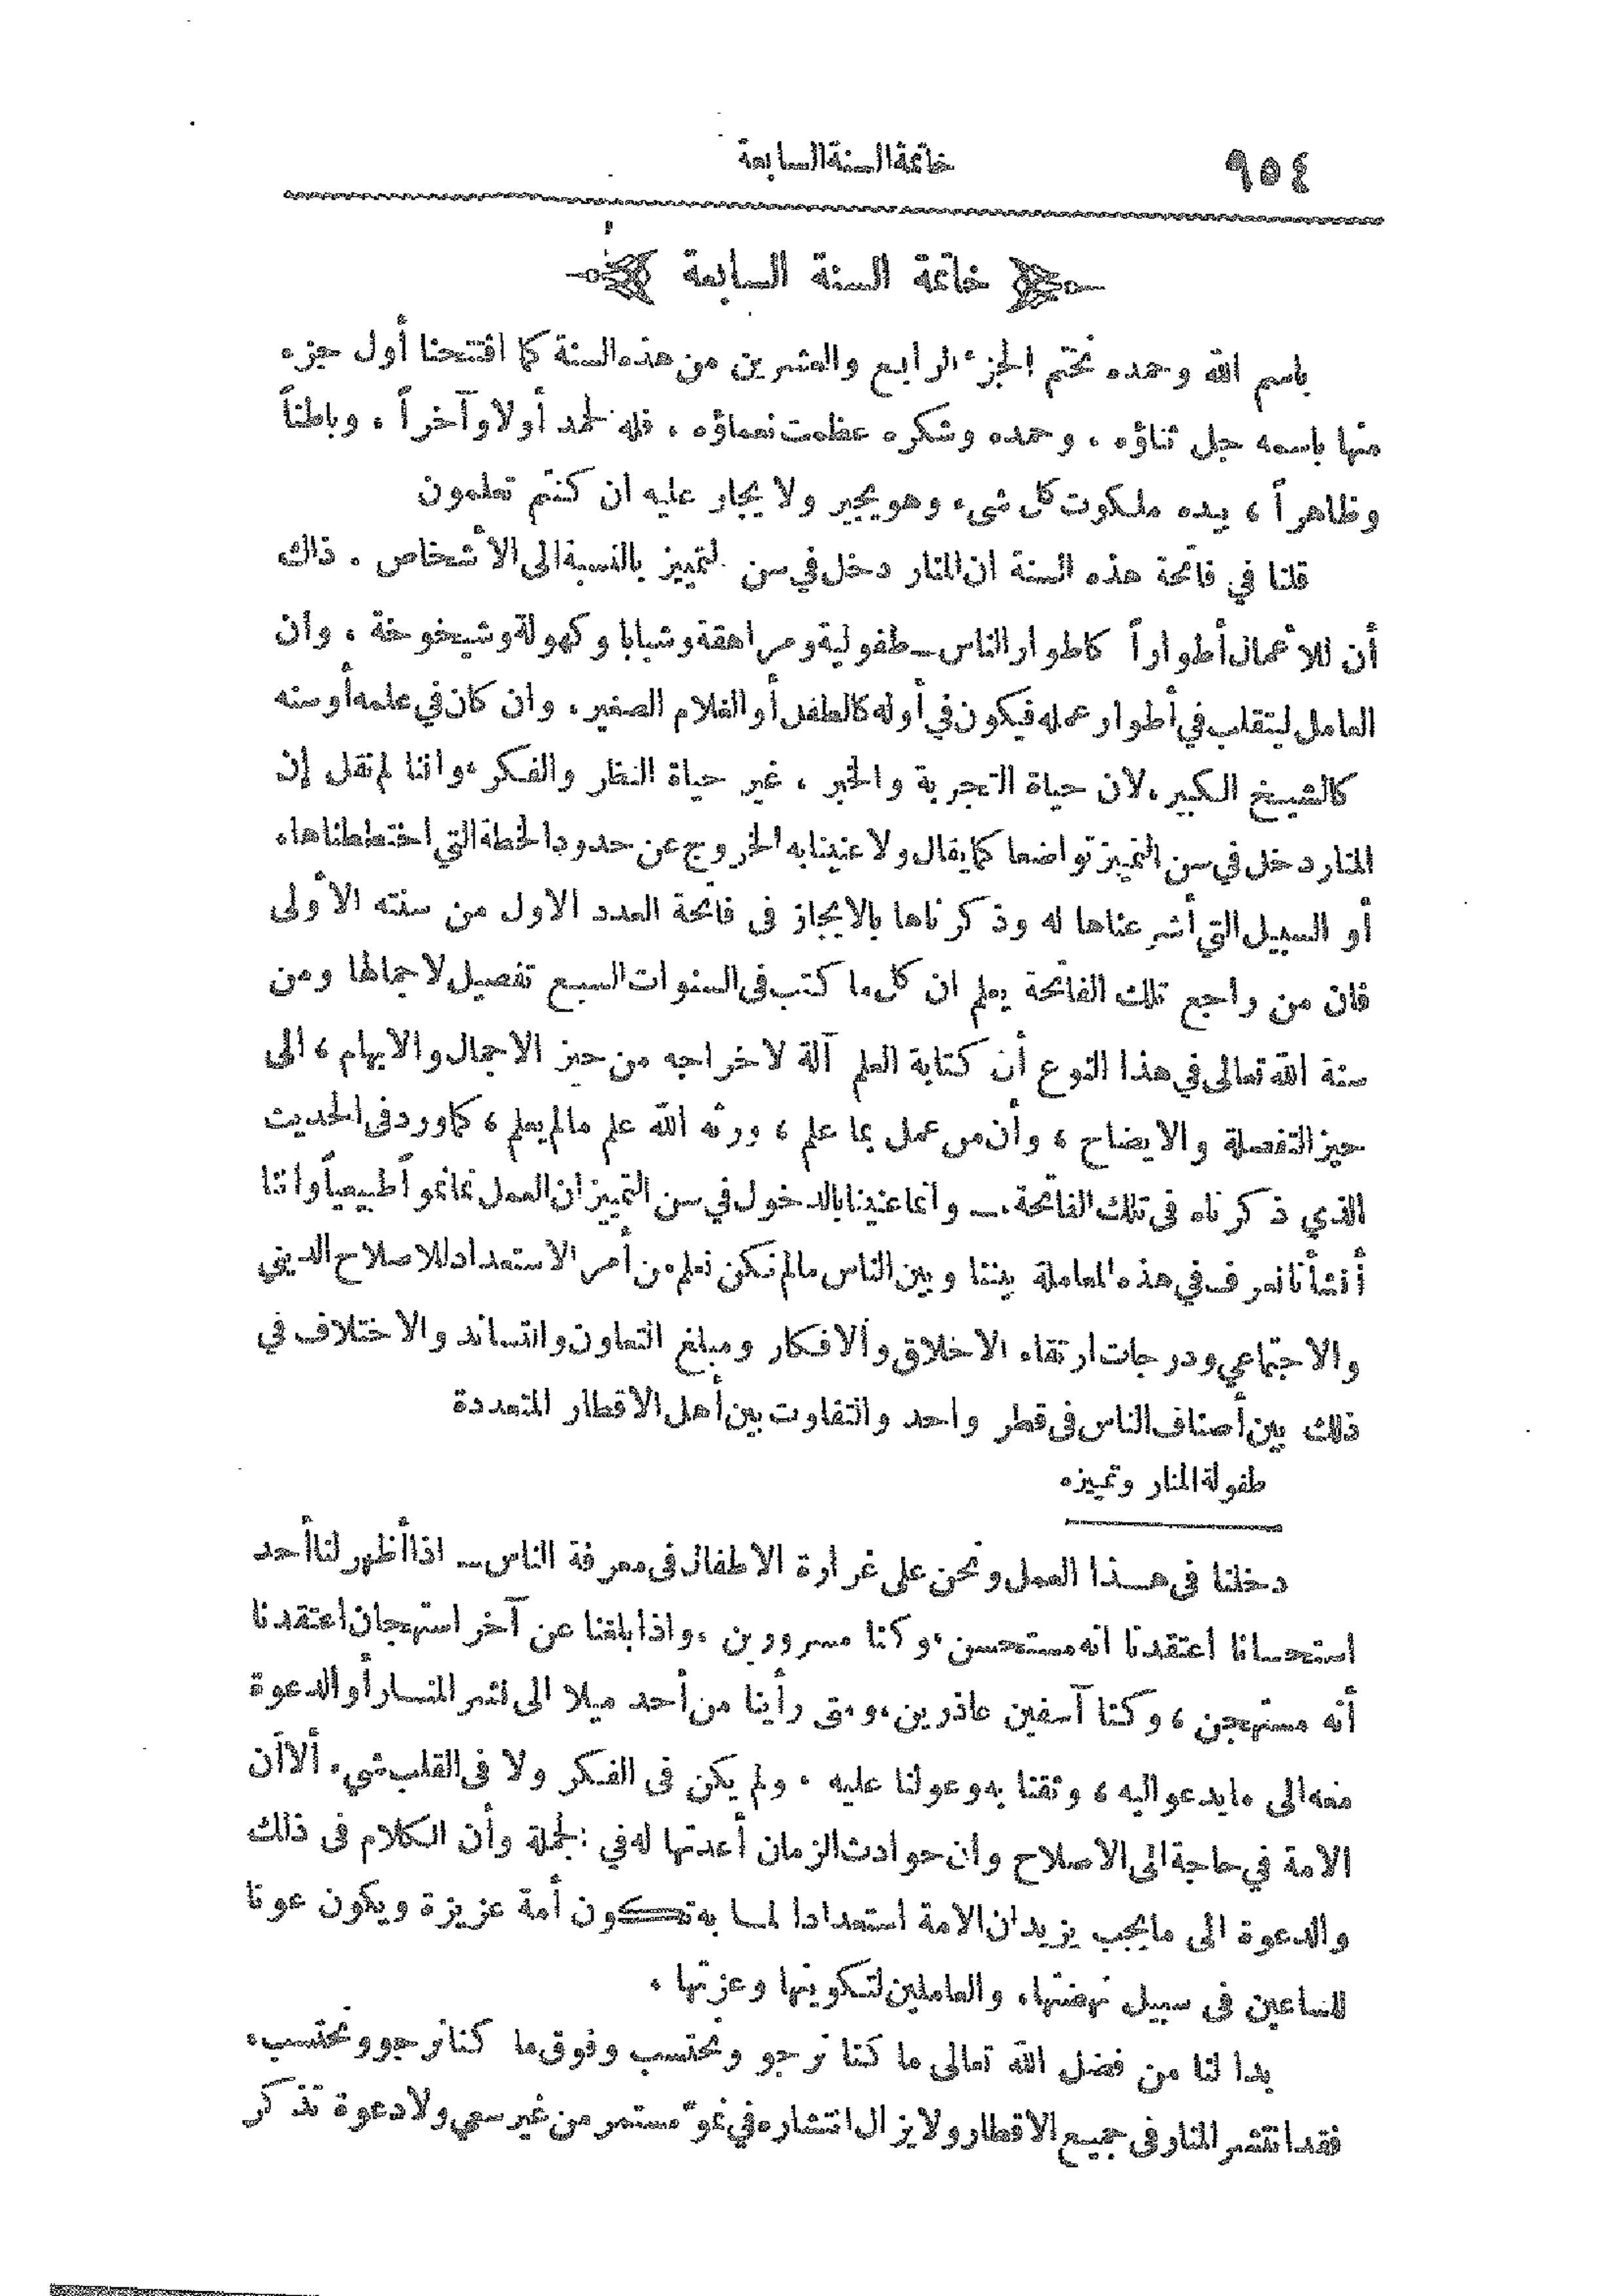 ٩٥٤
خاتمة السنة السابعة
خاتمة السنة السابعة
باسم الله وحمده نختم الجزء الرابع والعشرين من هذه السنة كما افتتحنا أول جزء
منها باسمه جل ثناؤه ، وحمده وشكره عظمت نعماؤه ، فله الحمد أولا وآخراً ، وباطناً
وظاهراً ، بيده ملكوت كل شيء وهو يجير ولا يجار عليه ان كنتم تعلمون
قلنا في فاتحة هذه السنة ان المنار دخل في سن التمييز بالنسبة الى الأشخاص . ذاك
أن للأعمال أطواراً كاطوار الناس ـ طفولية ومراهقة وشبابا وكهولة وشيخوخة ، وان
العامل ليتقلب في أطوار عمله فيكون في أوله كالطفل أو الغلام الصغير ، وان كان في علمه أو سنه
كالشيخ الكبير ، لان حياة التجربة والخبر ، غير حياة النظر والفكر ، واننا لم نقل إن
المنار دخل في سن التمييز تواضعا كما يقال ولا عنينا به الخروج عن حدود الخطة التي اختططناها ،
أو السبيل التي أشرعناها له وذكرناها بالايجاز في فاتحة العدد الاول من سنته الأولى
فان من راجع تلك الفاتحة يعلم ان كل ما كتب في السنوات السبع تفصيل لاجمالها ومن
سنة الله تعالى في هذا النوع أن كتابة العلم آلة لاخراجه من حيز الاجمال والابهام ، الى
حيز التفصلة والايضاح ، وأن من عمل بما علم ، ورثه الله علم ما لم يعلم ، كما ورد في الحديث
الذي ذكرناه في تلك الفاتحة . ـ وانما عنينا بالدخول في سن التمييز ان العمل نما نموا طبيعياً واننا
أنشأنا نعرف في هذه المعاملة بيننا وبين الناس ما لم نكن نعلم من أمر الاستعداد للاصلاح الديني
والاجتماعي ودرجات ارتقاء الاخلاق والافكار ومبلغ التعاون والتساند والاختلاف في
ذلك بين أصناف الناس في قطر واحد والتفاوت بين أهل الاقطار المتعددة
طفولة المنار وتمييزه
دخلنا في هـذا العمل ونحن على غرارة الاطفال في معرفة الناس ـ اذا أظهر لنا أحد
استحسانا اعتقدنا انه مستحسن ، وكنا مسرورين ، واذا بلغنا عن آخر استهجان اعتقدنا
أنه مستهجن ، وكنا آسفين عاذرين ، ومتى رأينا من أحد ميلا الى نشر المنـار أو الدعوة
معه الى ما يدعو اليه ، وثقنا به وعولنا عليه . ولم يكن في الفكر ولا في القلب شيء ، ألا أن
الامة في حاجة الى الاصلاح وان حوادث الزمان أعدتها له في الجملة وأن الكلام في ذلك
والدعوة الى ما يجب يزيدان الامة استعدادا لمـا به تكون أمة عزيزة ويكون عونا
للساعين في سبيل نهضتها ، والعاملين لتكوينها وعزتها .
بدا لنا من فضل الله تعالى ما كنا نرجو ونحتسب وفوق ما كنا نرجو ونحتسب ،
فقد انتشر المنار في جميع الاقطار ولا يزال انتشاره في نموّ مستمر من غير سعي ولا دعوة تذكر